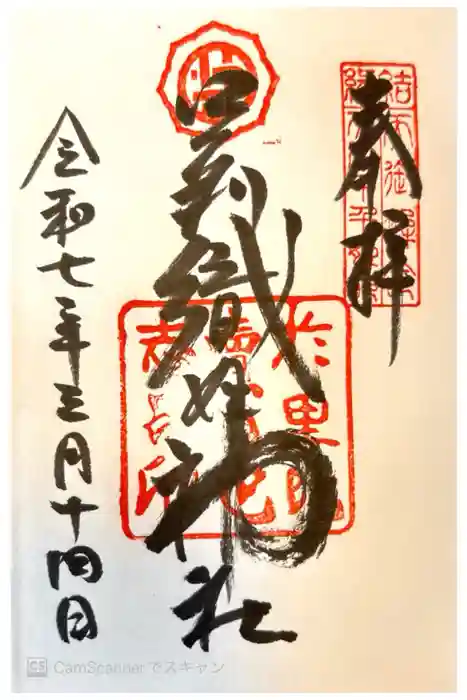 奉拝
足利織姫神社
令和七年三月十四日
CS CamScannerでスキャン